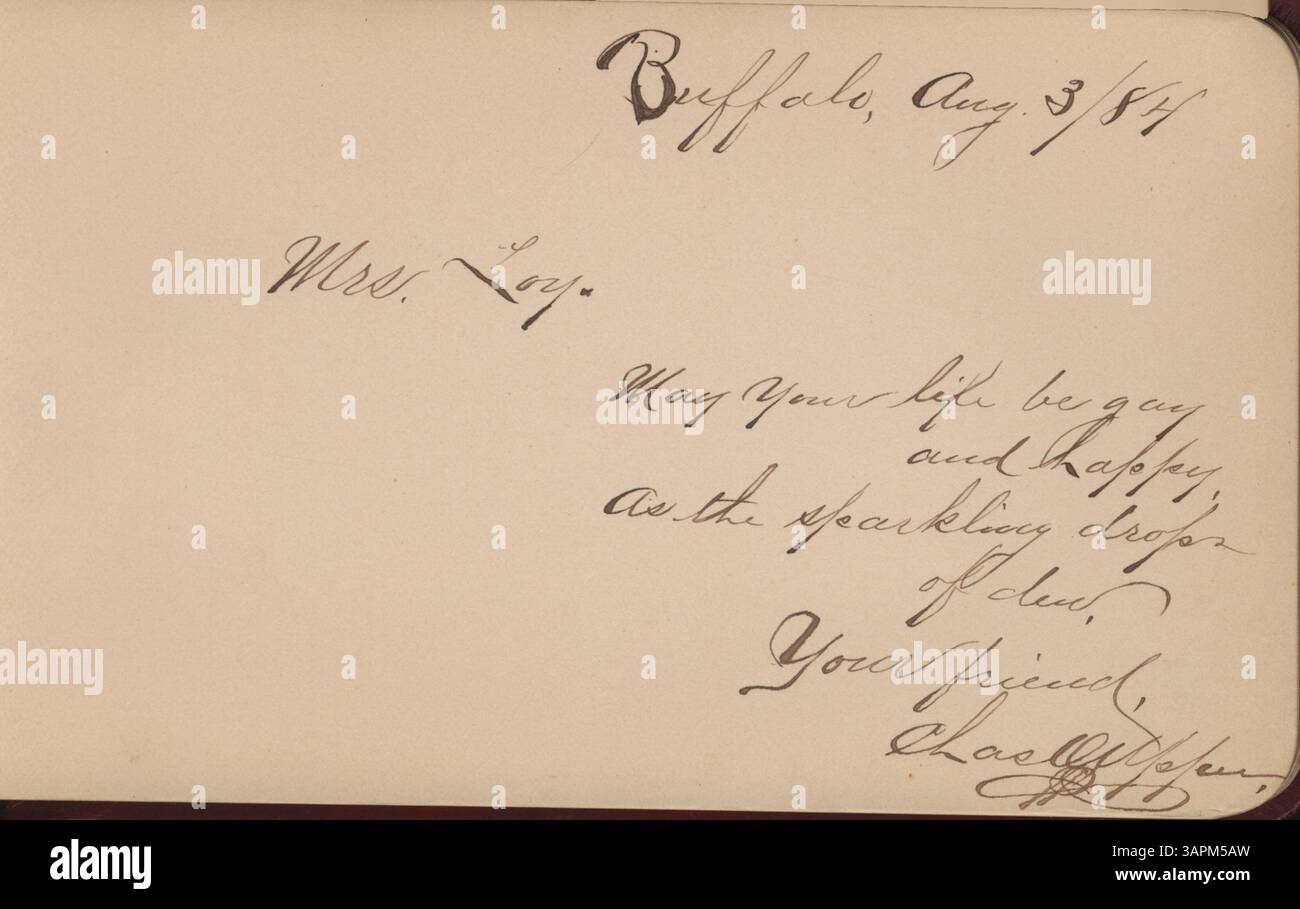 Buffalo, Aug. 3/84
Mrs. Loy.
May your life be gay
and happy,
as the sparkling drops
of dew,
Your friend,
Chas
alamy
Image ID: 3APM5AW
www.alamy.com